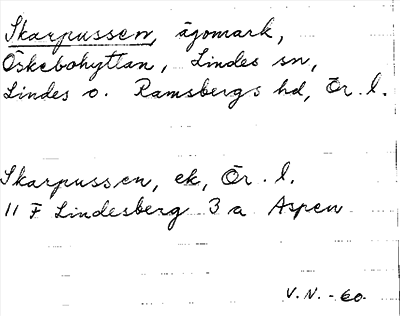 Skarpussen, ägomark,
Öskebohyttan, Lindes sn,
Lindes o. Ramsbergs hd, Ör. l.
Skarpussen, ek, Ör. l.
11 F Lindesberg 3 a Aspen
V.N. - 60.